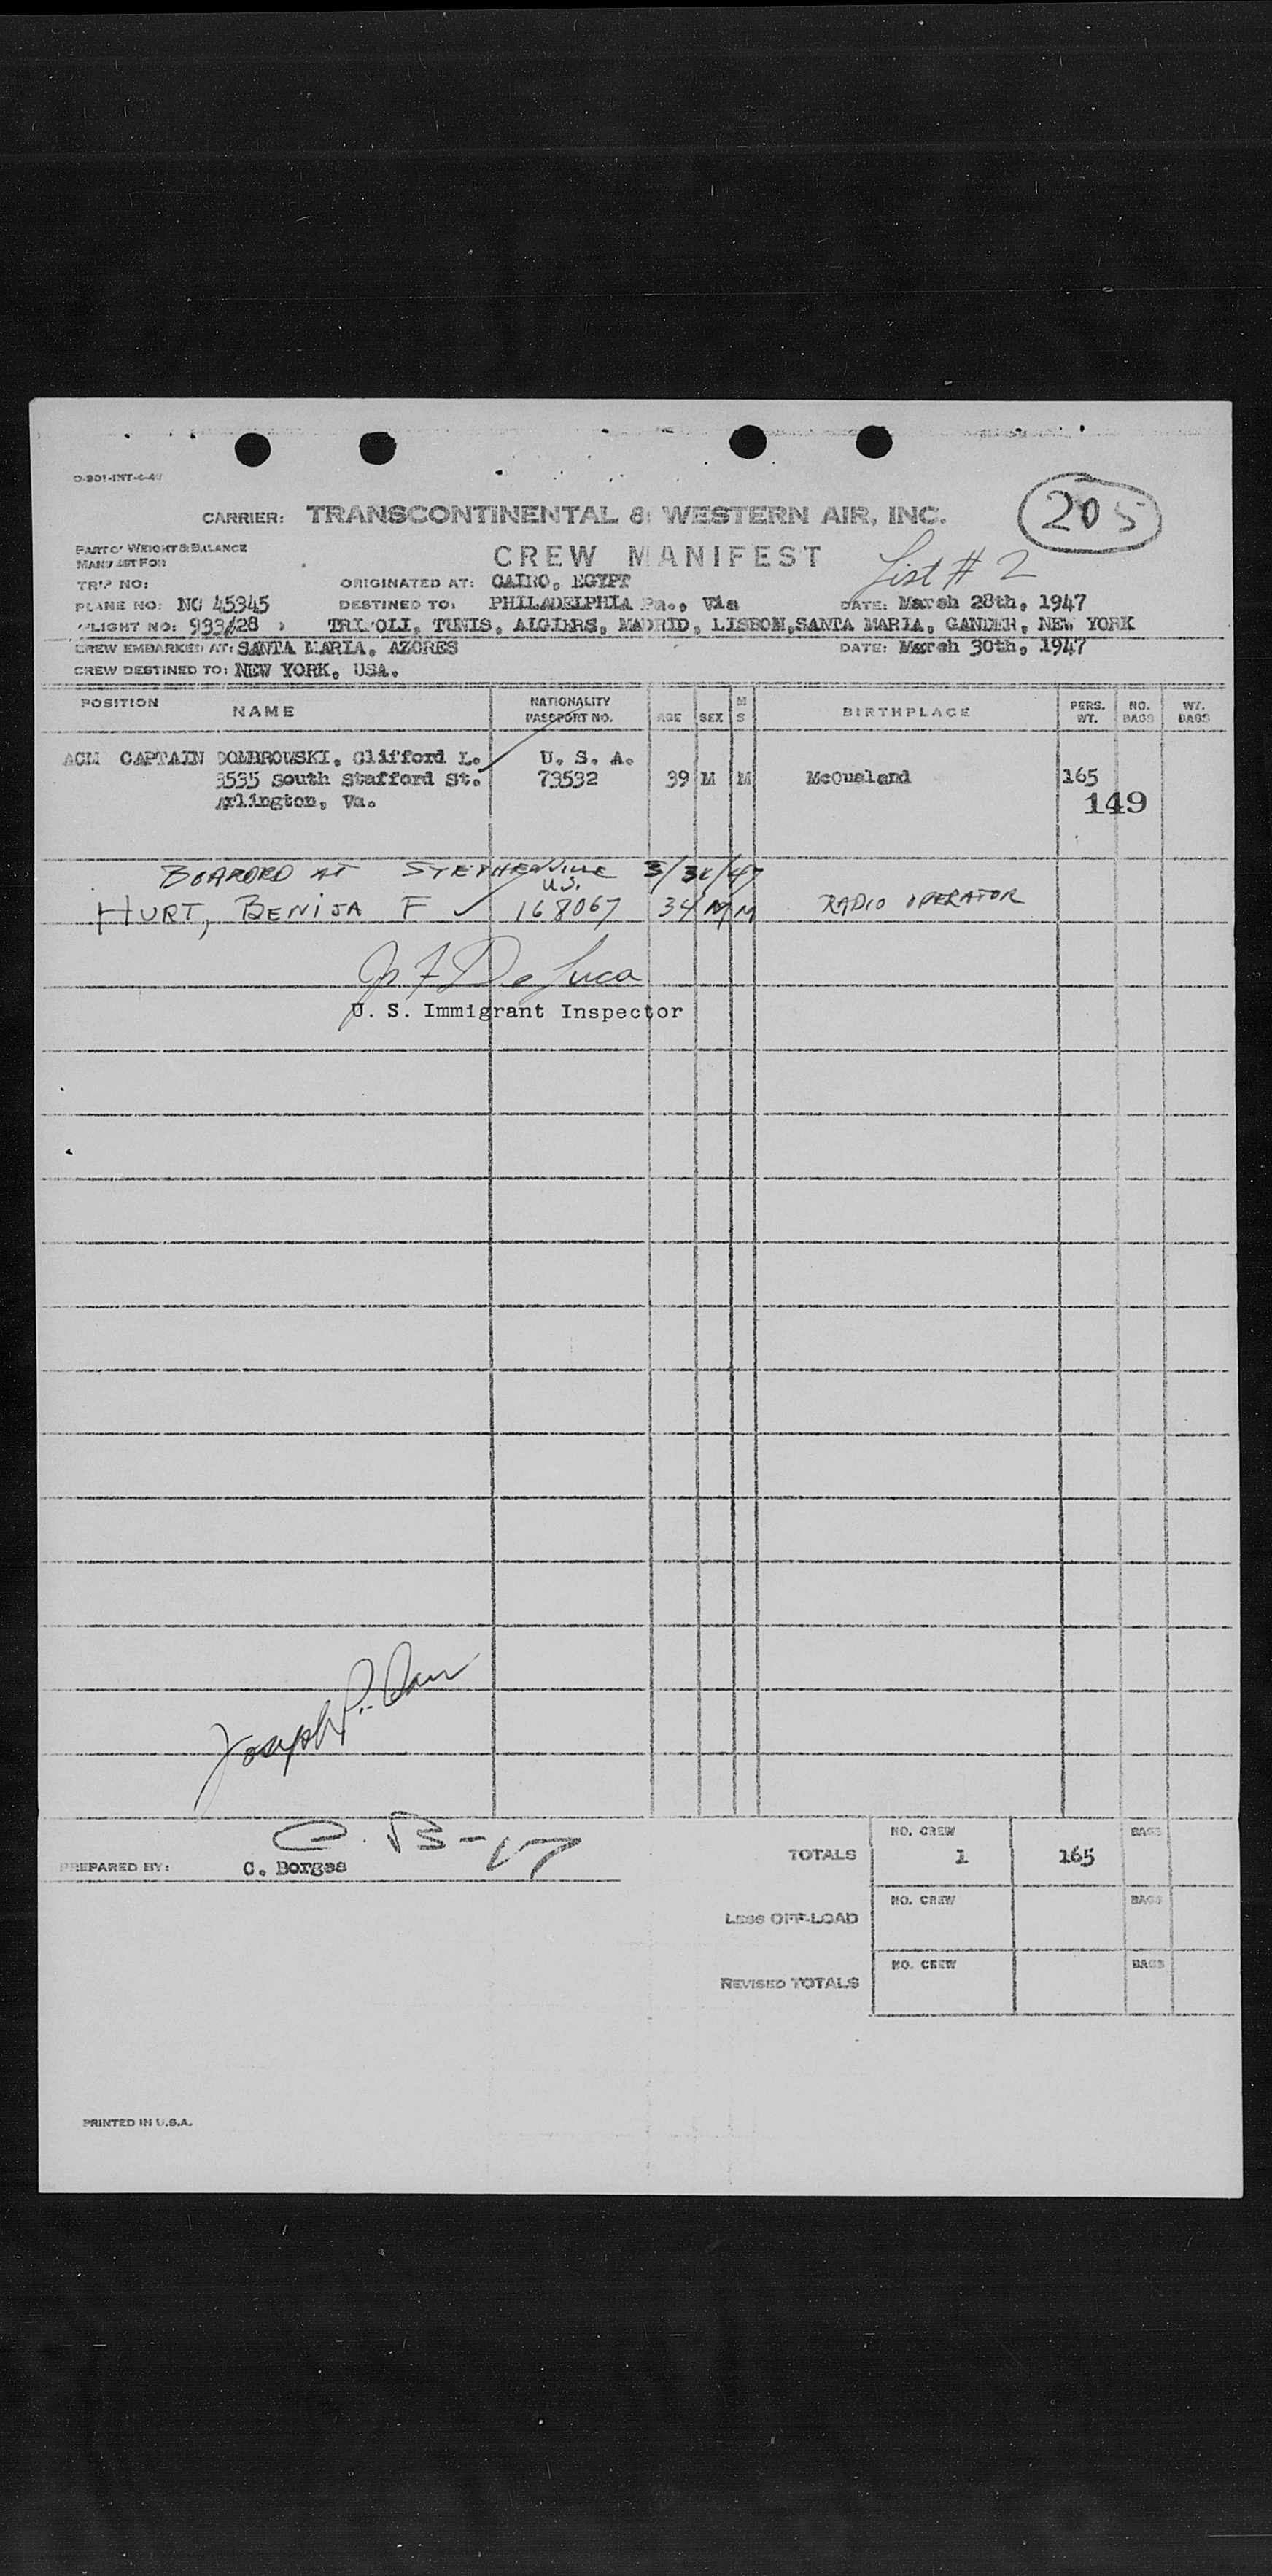 D-901-INT-4-46
205
CARRIER: TRANSCONTINENTAL & WESTERN AIR, INC.
PART OF WEIGHT & BALANCE
MANIFEST FOR
CREW MANIFEST
List # 2
TRIP NO: ORIGINATED AT: CAIRO, EGYPT
PLANE NO: NC 45345 DESTINED TO: PHILADELPHIA Pa., Via DATE: March 28th, 1947
FLIGHT NO: 933/28 TRIPOLI, TUNIS, ALGIERS, MADRID, LISBON, SANTA MARIA, GANDER, NEW YORK
CREW EMBARKED AT: SANTA MARIA, AZORES DATE: March 30th, 1947
CREW DESTINED TO: NEW YORK, USA.
POSITION NAME NATIONALITY PASSPORT NO. AGE SEX M S BIRTHPLACE PERS. WT. NO. BAGS WT. BAGS
ACM CAPTAIN DOMBROWSKI, Clifford L. U. S. A.
3535 South Stafford St. 73532 39 M M McCusland 165
Arlington, Va. 149
BOARDED AT STEPHENVILLE
U.S.
HURT, BENIJA F 168067 34 M M RADIO OPERATOR
De Luca
U. S. Immigrant Inspector
Joseph P.
C. B
PREPARED BY: C. Borges
TOTALS NO. CREW 1 165 BAGS
LESS OFF-LOAD NO. CREW BAGS
REVISED TOTALS NO. CREW BAGS
PRINTED IN U.S.A.